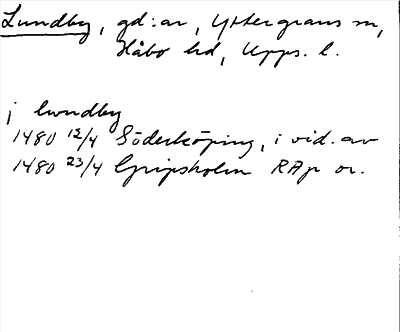 Lundby, gd:ar, Yttergrans sn,
Håbo hd, Upps. l.
j lwndby
1480 12/4 Söderköping, i vid. av
1480 23/4 Gripsholm RAp or.